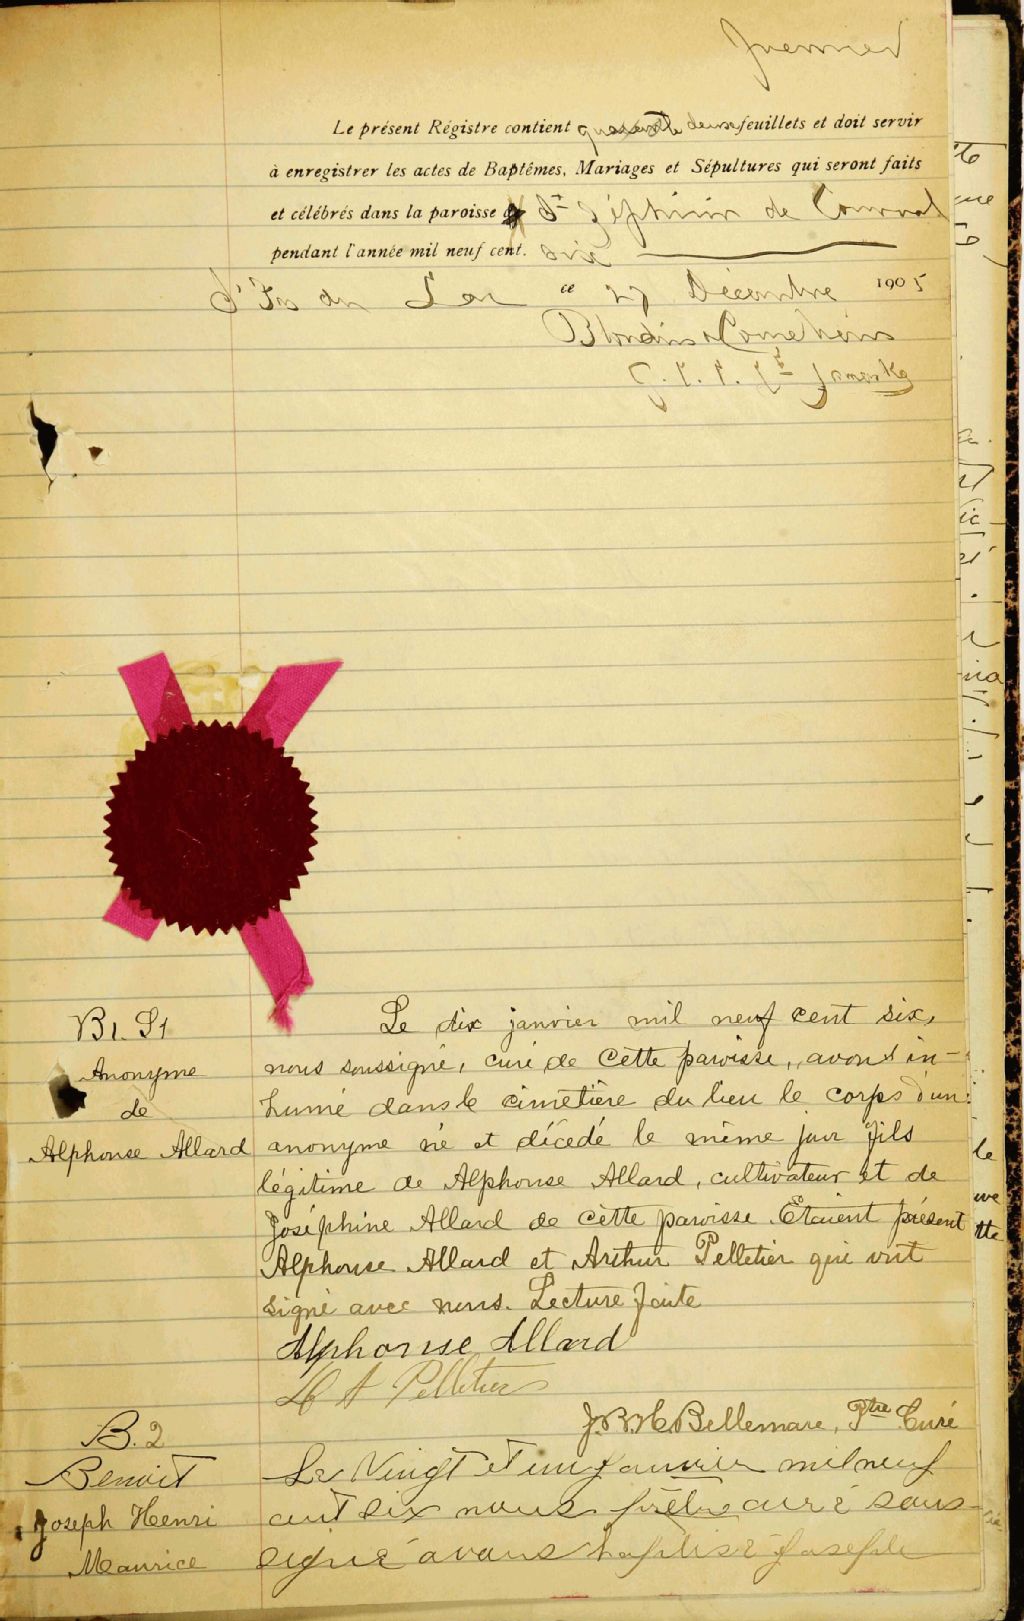 Premier
Le présent Régistre contient quarante deux feuillets et doit servir
à enregistrer les actes de Baptêmes, Mariages et Sépultures qui seront faits
et célébrés dans la paroisse de St Zéphirin de Courval
pendant l'année mil neuf cent. six
ce 27 Décembre 1905
B1. S1
Anonyme
de
Alphonse Allard
Le dix janvier mil neuf cent six,
nous soussigné, curé de cette paroisse, avons in-
humé dans le cimetière du lieu le corps d'un
anonyme né et décédé le même jour fils
légitime de Alphonse Allard, cultivateur et de
Joséphine Allard de cette paroisse. Etaient présent
Alphonse Allard et Arthur Pelletier qui ont
signé avec nous. Lecture faite
Alphonse Allard
A Pelletier
J.B.H.Bellemare, Ptre Curé
B.2
Benoit
Joseph Henri
Maurice
Le Vingt et un janvier mil neuf
cent six nous prêtre curé sous-
signé avons baptisé Joseph